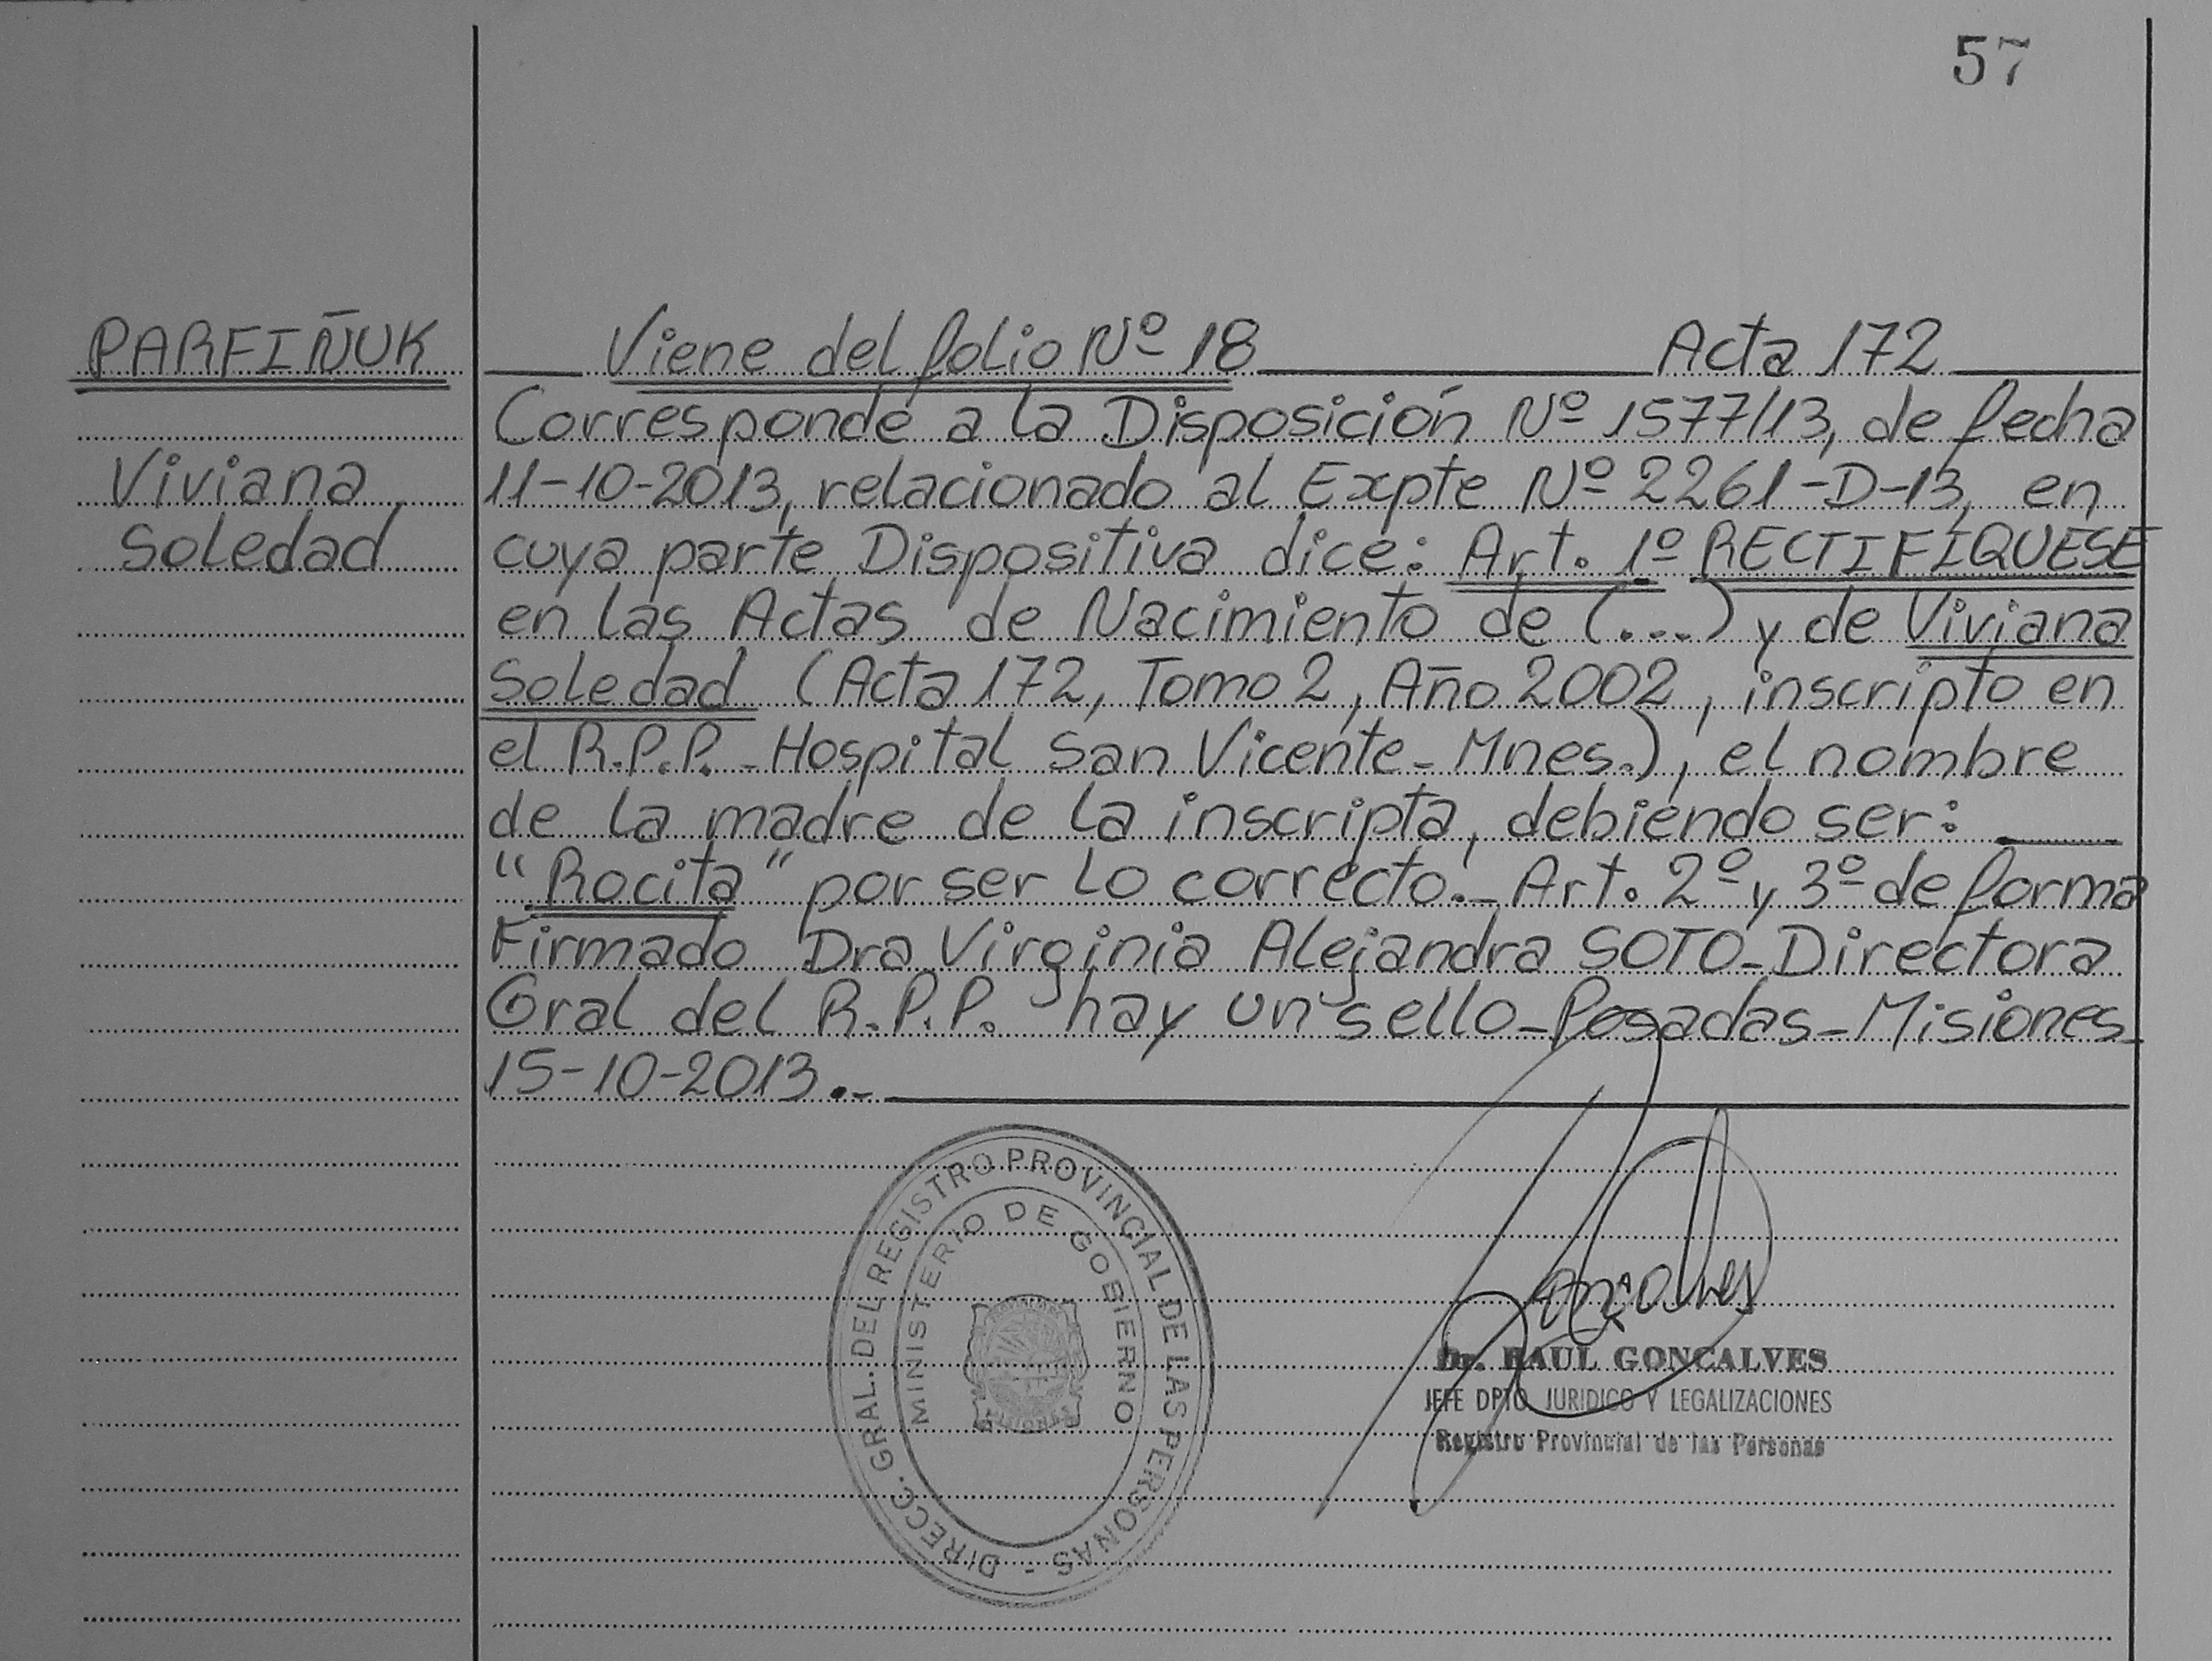 57
PARFIÑUK
Viviana
Soledad
Viene del folio Nº 18 Acta 172
Corresponde a la Disposición Nº 1577/13, de fecha
11-10-2013, relacionado al Expte Nº 2261-D-13, en
cuya parte Dispositiva dice: Art. 1º RECTIFÍQUESE
en las Actas de Nacimiento de (...) y de Viviana
Soledad (Acta 172, Tomo 2, Año 2002, inscripto en
el R.P.P. - Hospital San Vicente - Mnes.), el nombre
de la madre de la inscripta, debiendo ser:
"Rocita" por ser lo correcto.- Art. 2º y 3º de forma
Firmado Dra Virginia Alejandra SOTO - Directora
Gral del R.P.P. hay un sello - Posadas - Misiones -
15-10-2013.-
DIRECC. GRAL. DEL REGISTRO PROVINCIAL DE LAS PERSONAS -
MINISTERIO DE GOBIERNO
MISIONES
Gonçalves
Dr. RAUL GONCALVES
JEFE DPTO JURIDICO Y LEGALIZACIONES
Registro Provincial de las Personas